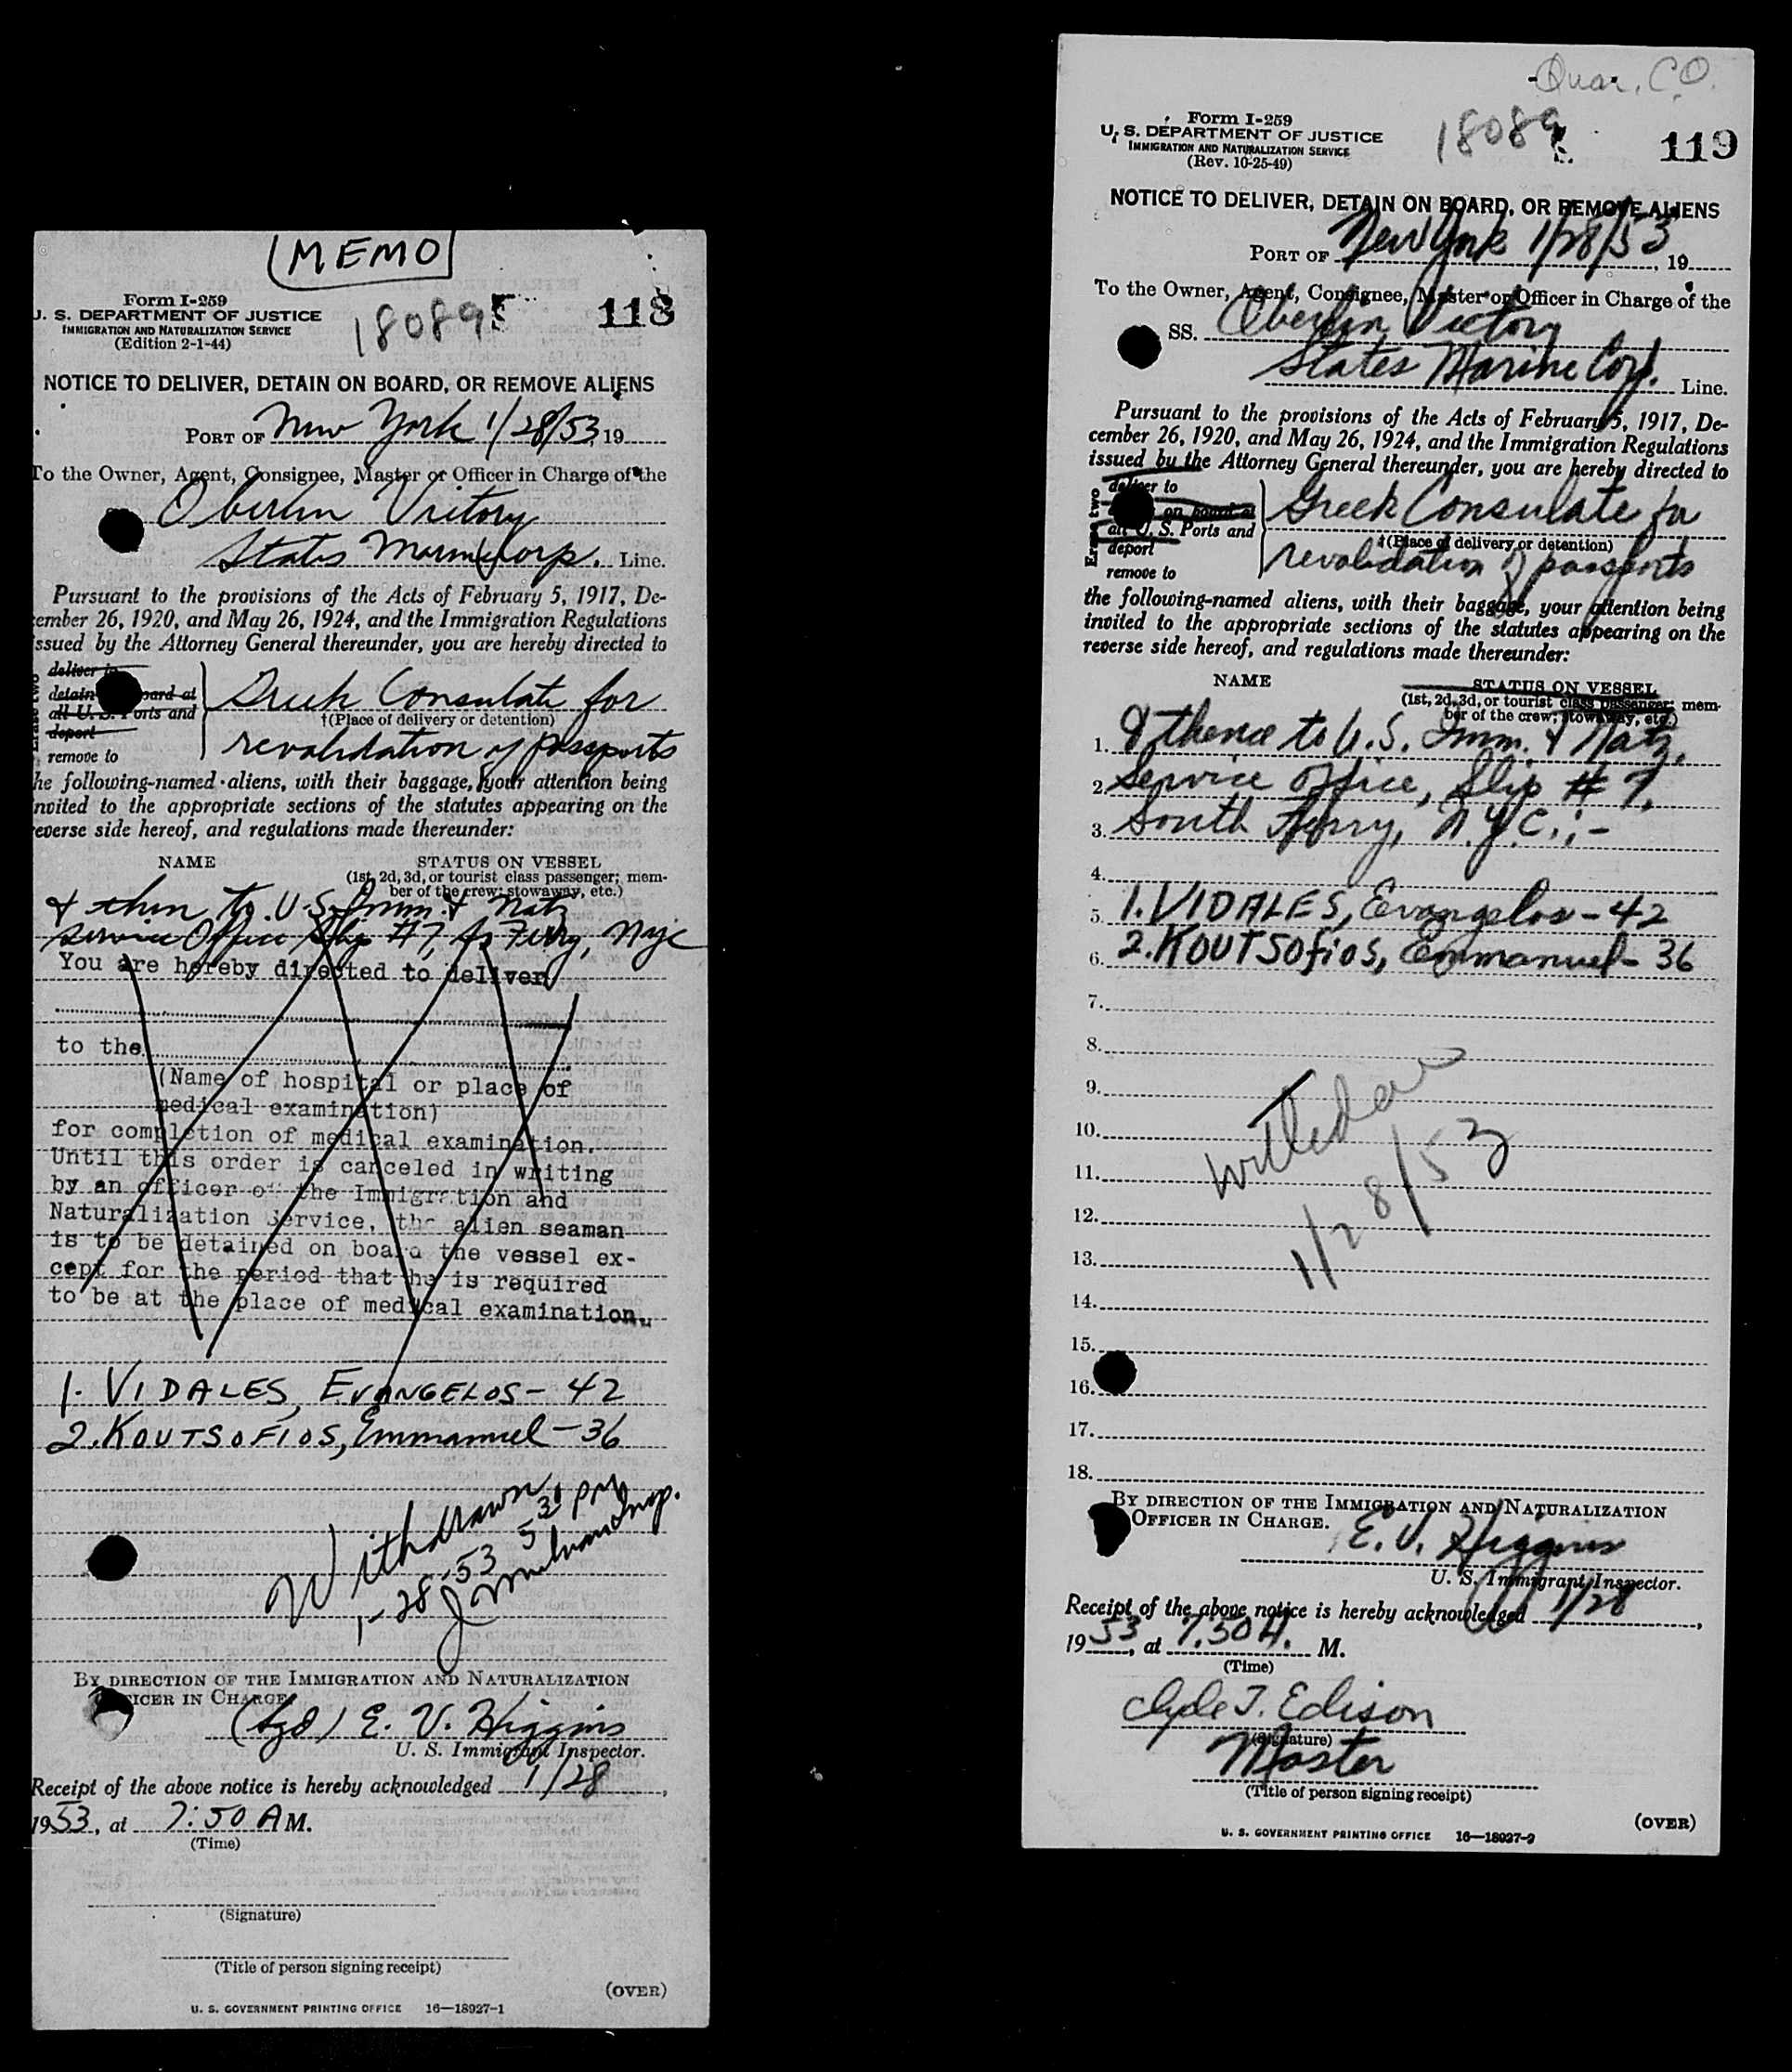 MEMO
Form I-259
U. S. DEPARTMENT OF JUSTICE
IMMIGRATION AND NATURALIZATION SERVICE
(Edition 2-1-44)
18089
118
NOTICE TO DELIVER, DETAIN ON BOARD, OR REMOVE ALIENS
PORT OF New York 1/28/53, 19
To the Owner, Agent, Consignee, Master or Officer in Charge of the
Oberlin Victory
States Marine Corp. Line.
Pursuant to the provisions of the Acts of February 5, 1917, De-
cember 26, 1920, and May 26, 1924, and the Immigration Regulations
issued by the Attorney General thereunder, you are hereby directed to
deliver to
detain on board at
all U. S. Ports and
deport
remove to
Greek Consulate for
†(Place of delivery or detention)
revalidation of passports
the following-named aliens, with their baggage, your attention being
invited to the appropriate sections of the statutes appearing on the
reverse side hereof, and regulations made thereunder:
NAME
STATUS ON VESSEL
(1st, 2d, 3d, or tourist class passenger; mem-
ber of the crew; stowaway, etc.)
& then to U.S. Imm. & Natz
Service Office Slip #7, So Ferry, NYC
You are hereby directed to deliver
to the
(Name of hospital or place of
medical examination)
for completion of medical examination.
Until this order is canceled in writing
by an officer of the Immigration and
Naturalization Service, the alien seaman
is to be detained on board the vessel ex-
cept for the period that he is required
to be at the place of medical examination.
1. VIDALES, EVANGELOS - 42
2. KOUTSOFIOS, Emmanuel - 36
Withdrawn
1-28-53 5 30 PM
BY DIRECTION OF THE IMMIGRATION AND NATURALIZATION
OFFICER IN CHARGE.
(Sgd) E. V. Higgins
U. S. Immigrant Inspector.
Receipt of the above notice is hereby acknowledged 1/28,
1953, at 7:50 A M.
(Time)
(Signature)
(Title of person signing receipt)
(OVER)
U. S. GOVERNMENT PRINTING OFFICE 16—18927-1
Quar. C.O.
Form I-259
U. S. DEPARTMENT OF JUSTICE
IMMIGRATION AND NATURALIZATION SERVICE
(Rev. 10-25-49)
18089
119
NOTICE TO DELIVER, DETAIN ON BOARD, OR REMOVE ALIENS
PORT OF New York 1/28/53, 19
To the Owner, Agent, Consignee, Master or Officer in Charge of the
SS. Oberlin Victory
States Marine Corp. Line.
Pursuant to the provisions of the Acts of February 5, 1917, De-
cember 26, 1920, and May 26, 1924, and the Immigration Regulations
issued by the Attorney General thereunder, you are hereby directed to
Erase two
deliver to
on board at
all U. S. Ports and
deport
remove to
Greek Consulate for
‡(Place of delivery or detention)
revalidation of passports
the following-named aliens, with their baggage, your attention being
invited to the appropriate sections of the statutes appearing on the
reverse side hereof, and regulations made thereunder:
NAME
STATUS ON VESSEL
(1st, 2d, 3d, or tourist class passenger; mem-
ber of the crew; stowaway, etc.)
1. & thence to U.S. Imm. & Natz.
2. Service Office, Slip # 7,
3. South Ferry, N.Y.C.:-
4.
5. 1. VIDALES, Evangelos - 42
6. 2. KOUTSOfiOS, Emmanuel - 36
7.
8.
9.
10.
11.
12.
13.
14.
15.
16.
17.
18.
1/28/53
BY DIRECTION OF THE IMMIGRATION AND NATURALIZATION
OFFICER IN CHARGE.
E. V. Higgins
U. S. Immigrant Inspector.
Receipt of the above notice is hereby acknowledged 1/28,
1953, at 7.50 A. M.
(Time)
Clyde T. Edison
(Signature)
Master
(Title of person signing receipt)
(OVER)
U. S. GOVERNMENT PRINTING OFFICE 16—18927-2